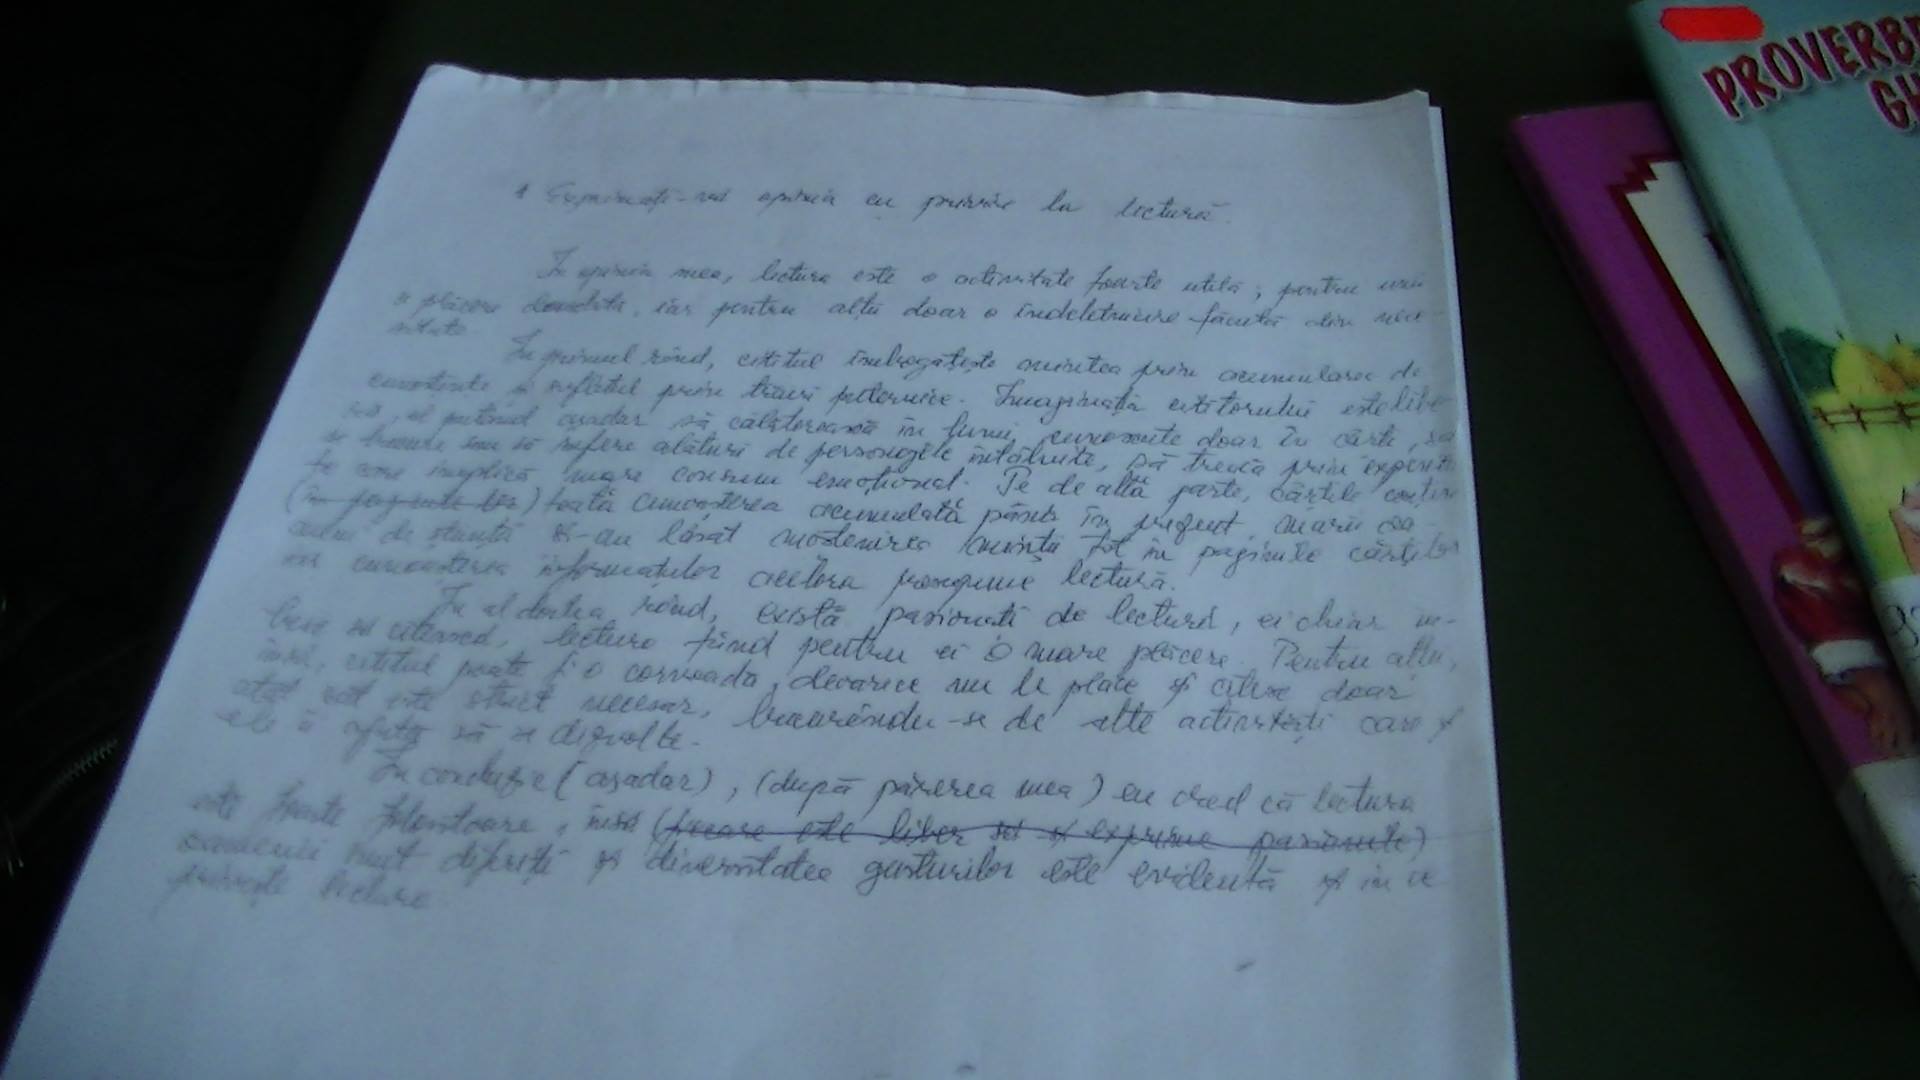 1 Exprimați-vă opinia cu privire la lectură.
În opinia mea, lectura este o activitate foarte utilă; pentru unii
o plăcere deosebită, iar pentru alții doar o îndeletnicire făcută din nece-
sitate.
În primul rând, cititul îmbogățește mintea prin acumularea de
cunoștințe și sufletul prin trăiri puternice. Imaginația cititorului este libe-
ră, el putând așadar să călătorească în lumi cunoscute doar în cărți, să
se bucure sau să sufere alături de personajele întâlnite, să treacă prin experien-
țe care implică mare consum emoțional. Pe de altă parte, cărțile conțin
(în paginile lor) toată cunoașterea acumulată până în prezent, marii oa-
meni de știință și-au lăsat moștenirea minții tot în paginile cărților
iar cunoașterea informațiilor acelora presupune lectură.
În al doilea rând, există pasionați de lectură, ei chiar iu-
besc să citească, lectura fiind pentru ei o mare plăcere. Pentru alții,
însă, cititul poate fi o corvoadă, deoarece nu le place și citesc doar
atât cât este strict necesar, bucurându-se de alte activități care și
ele îi ajută să se dezvolte.
În concluzie (așadar), (după părerea mea) eu cred că lectura
este foarte folositoare, însă (fiecare este liber să-și exprime pasiunile)
oamenii sunt diferiți și diversitatea gusturilor este evidentă și în ce
privește lectura.
PROVERBE
GH